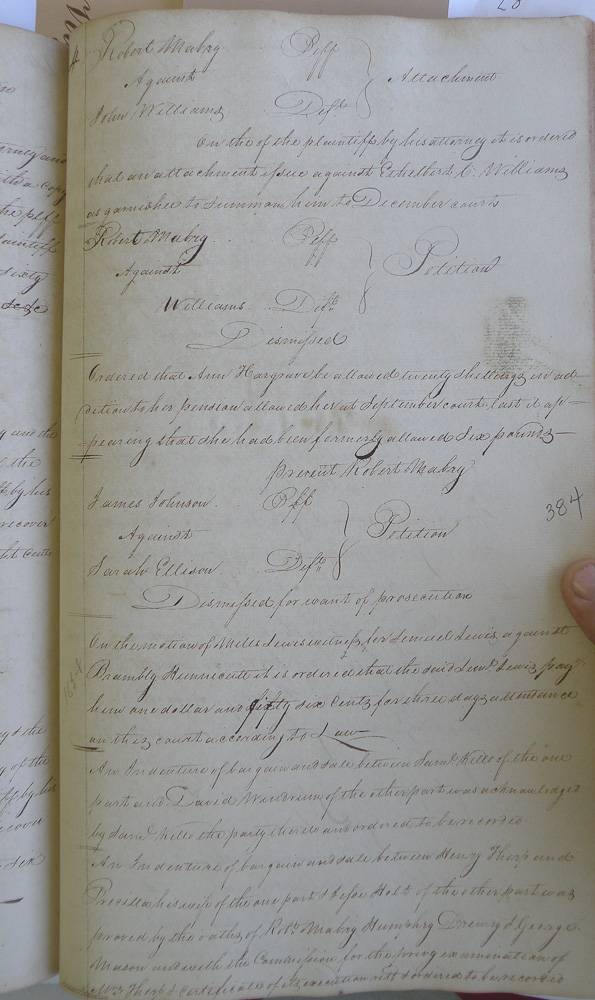 Robert Mabry Plff
Against Attachment
John Williams Deft
On the of the plaintiff by his attorney it is ordered
that an attachment issue against Ethelbert C. Williams
as garnishee to Summon him to December court
Robert Mabry Plff
Against Petition
Williams Deft
Dismissed
Ordered that Ann Hargrave be allowed twenty shillings in ad
dition to her pension allowed her at September court last it ap=
=pearing that she had been formerly allowed Six pounds
present Robert Mabry
James Johnson Plff
384
Against Petition
Sarah Ellison Deft
Dismissed for want of prosecution
On the motion of Miles Lewis witness for Lemuel Lewis against
Brambly Hunnicutt it is ordered that the said Leml Lewis pay
him one dollar and fifty six Cents for three days attendance
on this court according to Law
An Indenture of bargain and sale between Saml Kello of the one
part and David Windrum of the other part was acknowledged
by Saml Kello the party thereto and ordered to be recorded
An Indenture of bargain and sale between Henry Tharp and
his wife of the one part & Jesse Holt of the other part was
proved by the oaths of Robt Mabry Humphry Drewry & George
Mason and with the Commission for the privy examination of
Mrs Tharp & Certificate of its execution ordered to be recorded